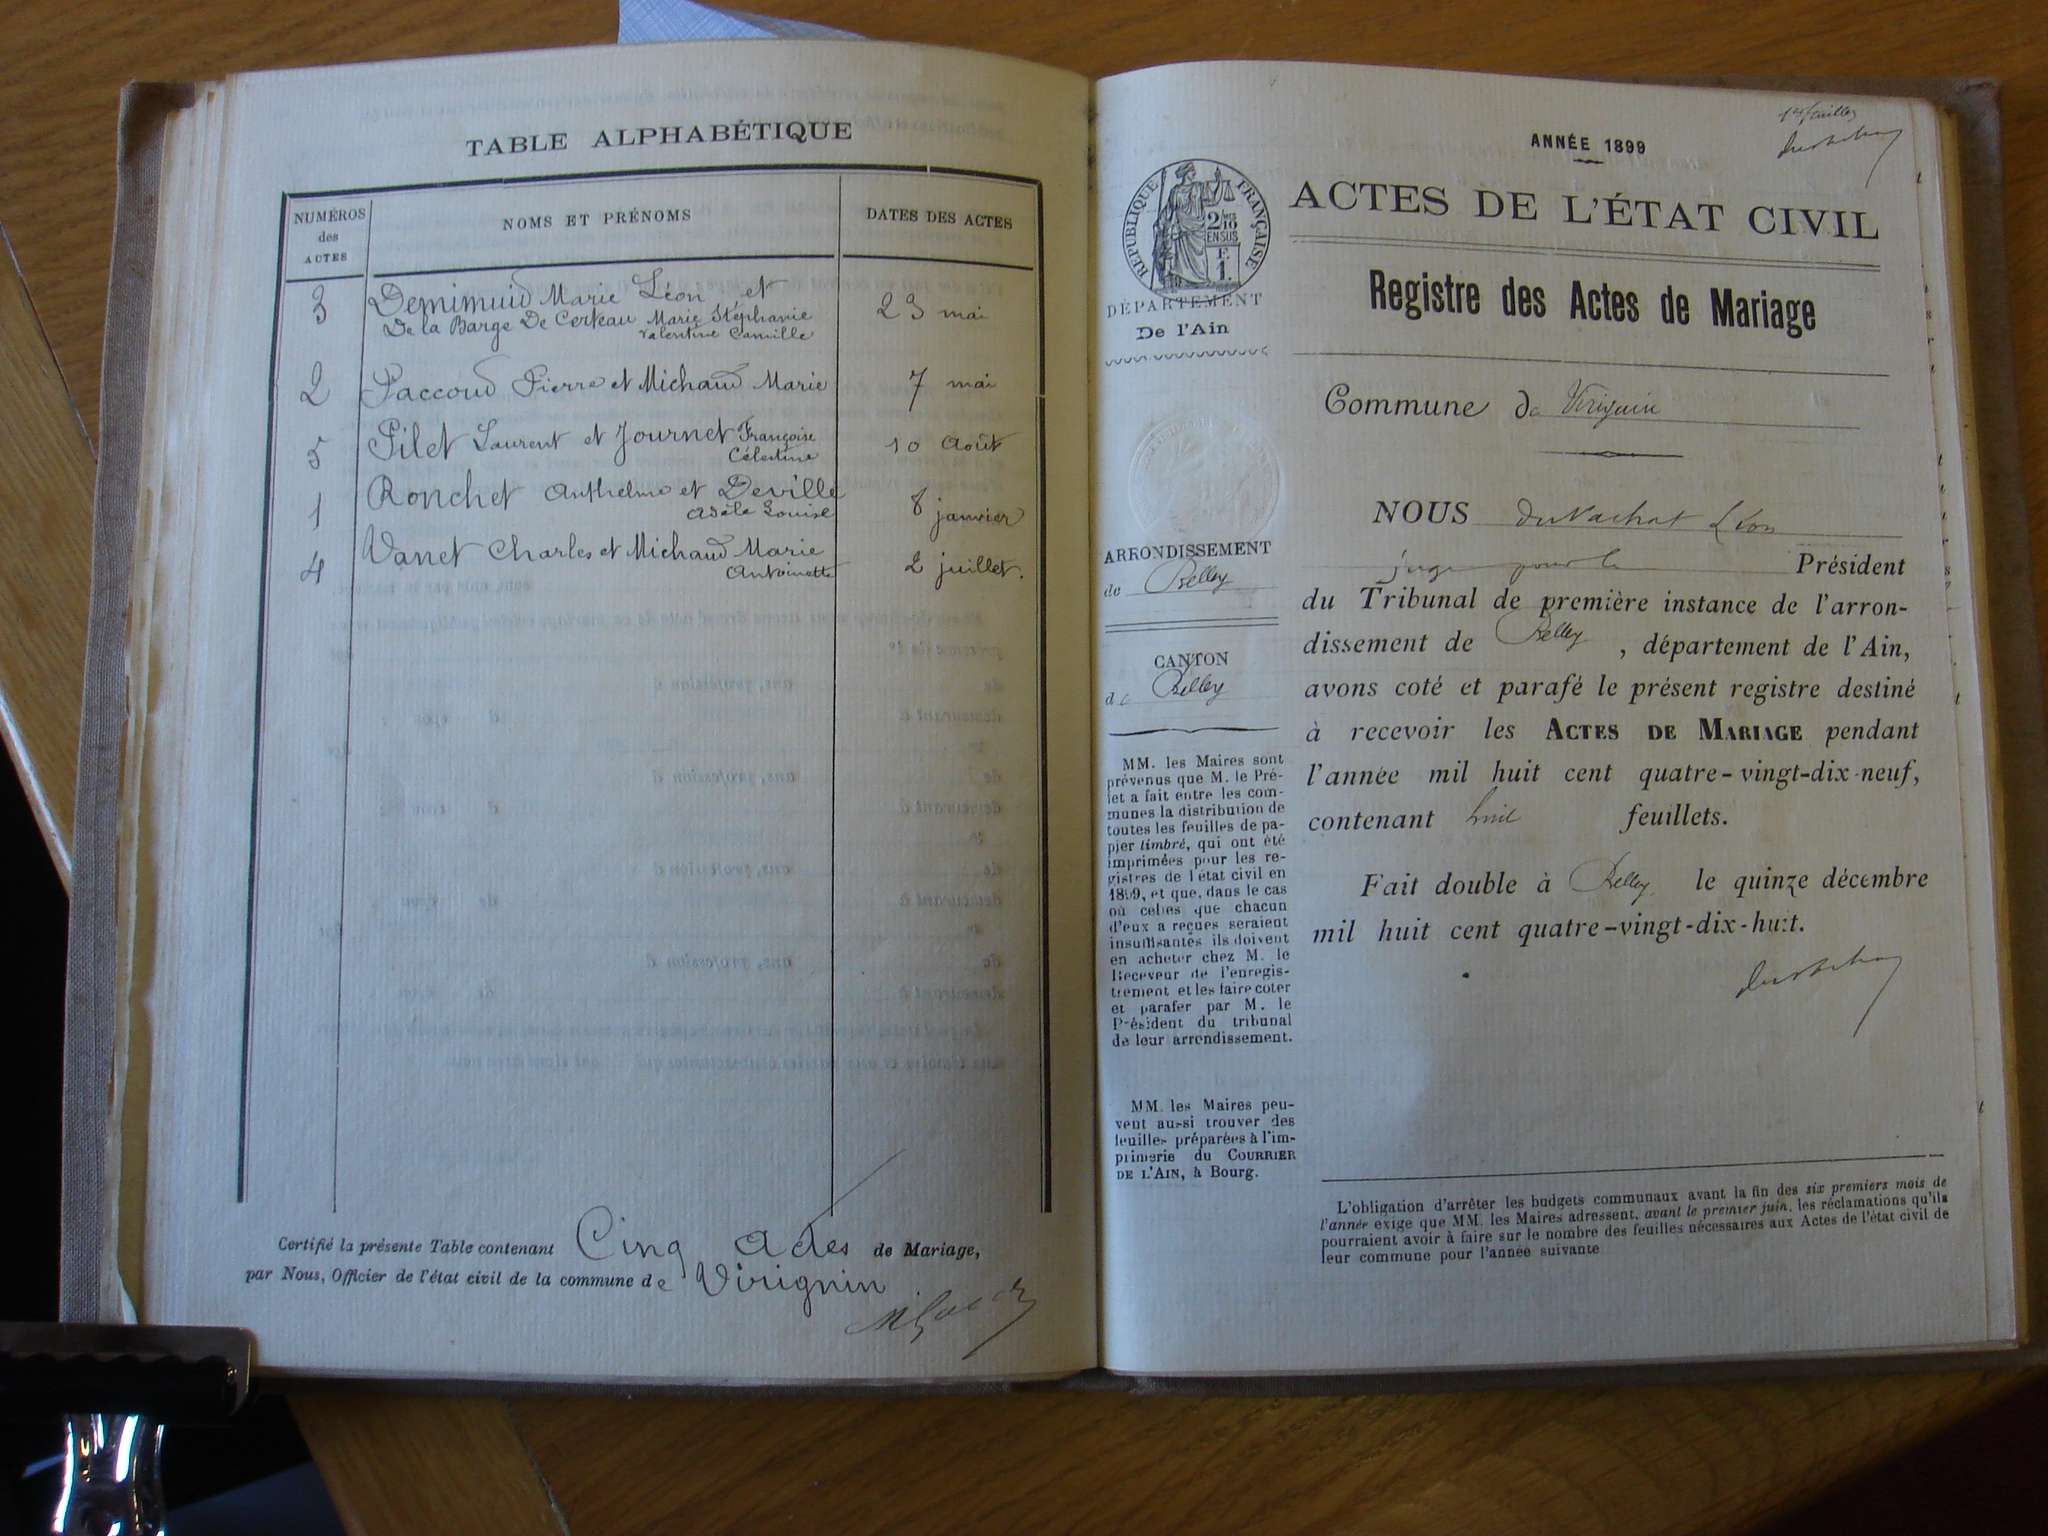 TABLE ALPHABÉTIQUE
NUMÉROS des ACTES
NOMS ET PRÉNOMS
DATES DES ACTES
3 Demimuid Marie Léon et 23 mai
De la Barge De Certeau Marie Stéphanie
Valentine Camille
2 Paccoud Pierre et Michaud Marie 7 mai
5 Pilet Laurent et Journet Françoise 10 Août
Célestine
1 Ronchet Anthelme et Deville 8 janvier
Adèle Louise
4 Vanet Charles et Michaud Marie 2 juillet.
Antoinette
Certifié la présente Table contenant Cinq actes de Mariage,
par Nous, Officier de l'état civil de la commune de Virignin
1er feuillet
ANNÉE 1899
ACTES DE L'ÉTAT CIVIL
Registre des Actes de Mariage
RÉPUBLIQUE FRANÇAISE
2/10 EN SUS
F. 1.
DÉPARTEMENT
De l'Ain
ARRONDISSEMENT
de Belley
CANTON
de Belley
MM. les Maires sont
prévenus que M. le Pré-
fet a fait entre les com-
munes la distribution de
toutes les feuilles de pa-
pier timbré, qui ont été
imprimées pour les re-
gistres de l'état civil en
1899, et que, dans le cas
où celles que chacun
d'eux a reçues seraient
insuffisantes ils doivent
en acheter chez M. le
Receveur de l'enregis-
trement et les faire coter
et parafer par M. le
Président du tribunal
de leur arrondissement.
MM. les Maires peu-
vent aussi trouver des
feuilles préparées à l'im-
primerie du COURRIER
DE L'AIN, à Bourg.
Commune de Virignin
NOUS Duvachat Léon
juge pour le Président
du Tribunal de première instance de l'arron-
dissement de Belley, département de l'Ain,
avons coté et parafé le présent registre destiné
à recevoir les ACTES DE MARIAGE pendant
l'année mil huit cent quatre-vingt-dix-neuf,
contenant huit feuillets.
Fait double à Belley, le quinze décembre
mil huit cent quatre-vingt-dix-huit.
L'obligation d'arrêter les budgets communaux avant la fin des six premiers mois de
l'année exige que MM. les Maires adressent, avant le premier juin, les réclamations qu'ils
pourraient avoir à faire sur le nombre des feuilles nécessaires aux Actes de l'état civil de
leur commune pour l'année suivante